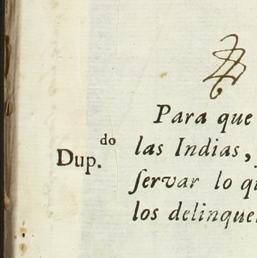 Para que
Dup.do
las Indias,
ſervar lo q
los delinque